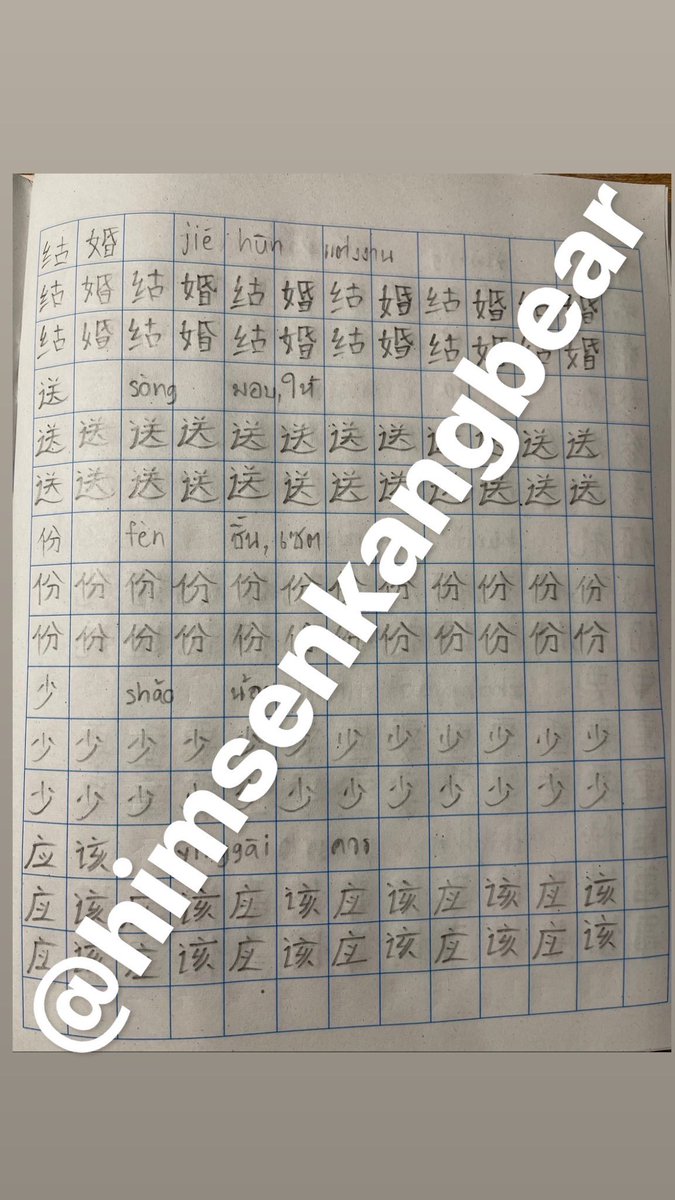 结 婚 jié hūn แต่งงาน
结 婚 结 婚 结 婚 结 婚 结 婚 结 婚
结 婚 结 婚 结 婚 结 婚 结 婚 结 婚
送 sòng มอบ,ให้
送 送 送 送 送 送 送 送 送 送 送 送
送 送 送 送 送 送 送 送 送 送 送 送
份 fèn ชิ้น, เซต
份 份 份 份 份 份 份 份 份 份 份 份
份 份 份 份 份 份 份 份 份 份 份 份
少 shǎo
少 少 少 少 少 少 少 少 少 少 少 少
少 少 少 少 少 少 少 少 少 少 少
应 该 yīnggāi ควร
应 该 应 该 应 该 应 该 应 该 应 该
应 该 应 该 应 该 应 该 应 该 应 该
@himsenkangbear